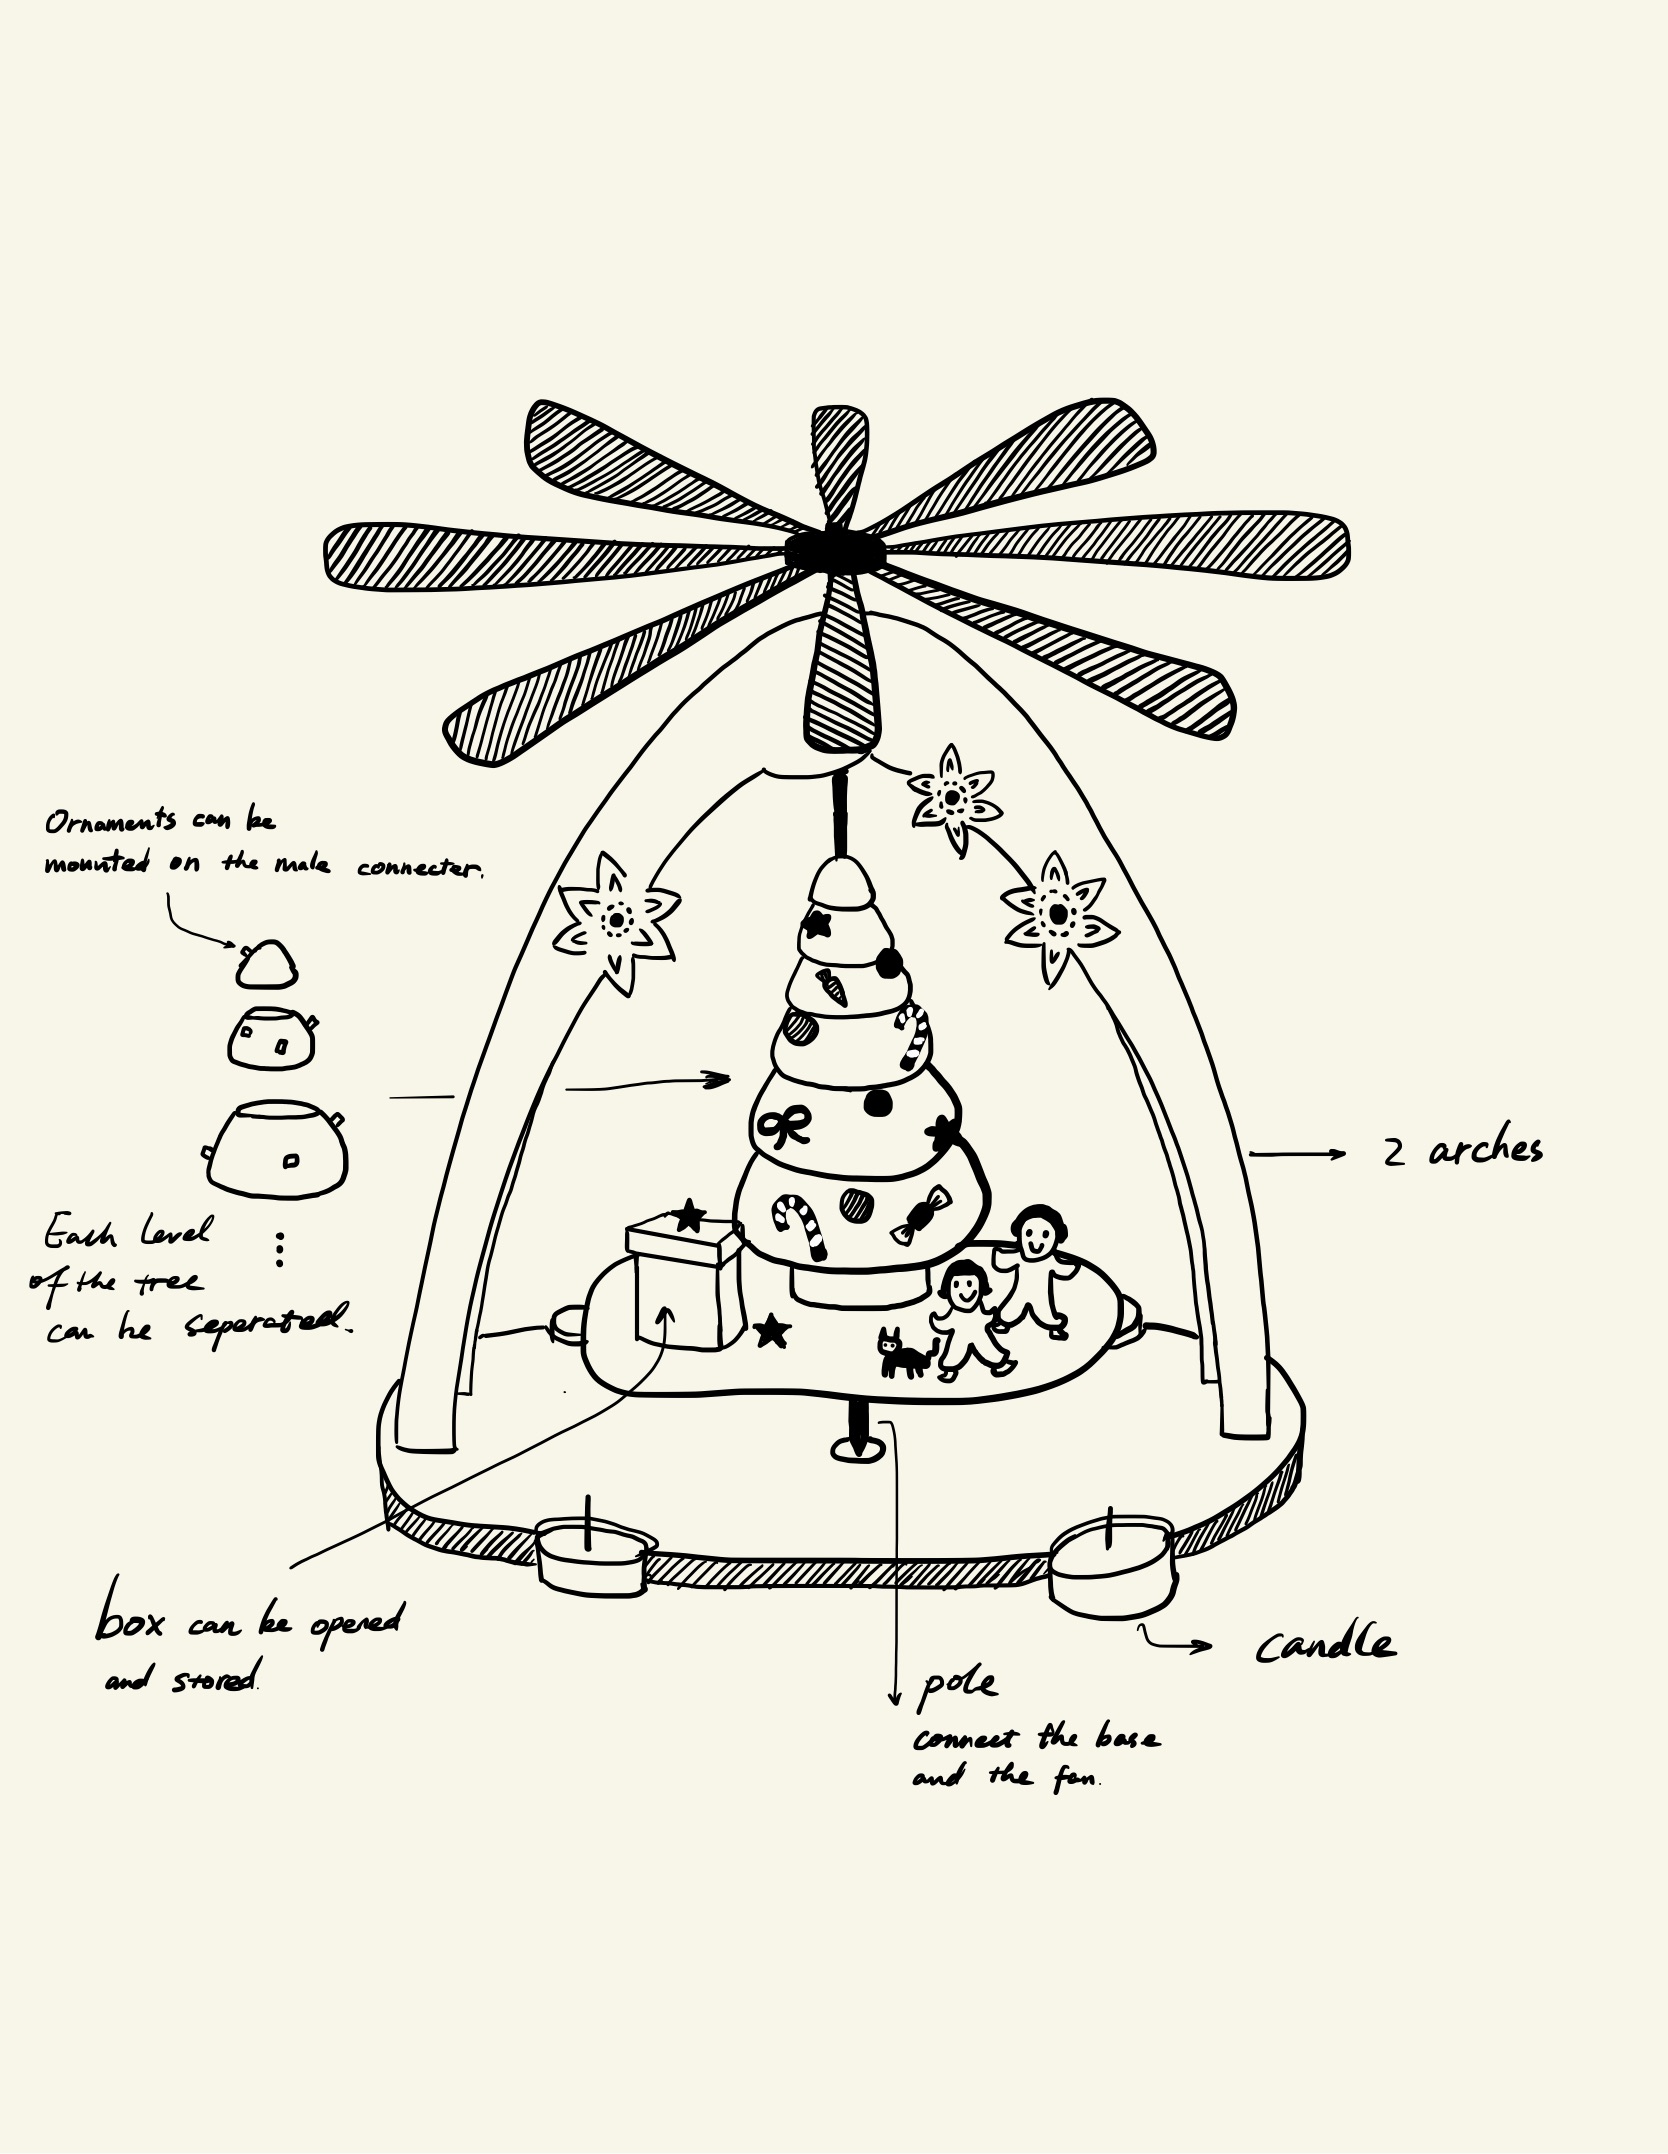 Ornaments can be
mounted on the male connecter.
2 arches
Each Level
of the tree
can be seperated.
box can be opened
and stored.
candle
pole
connect the base
and the fan.